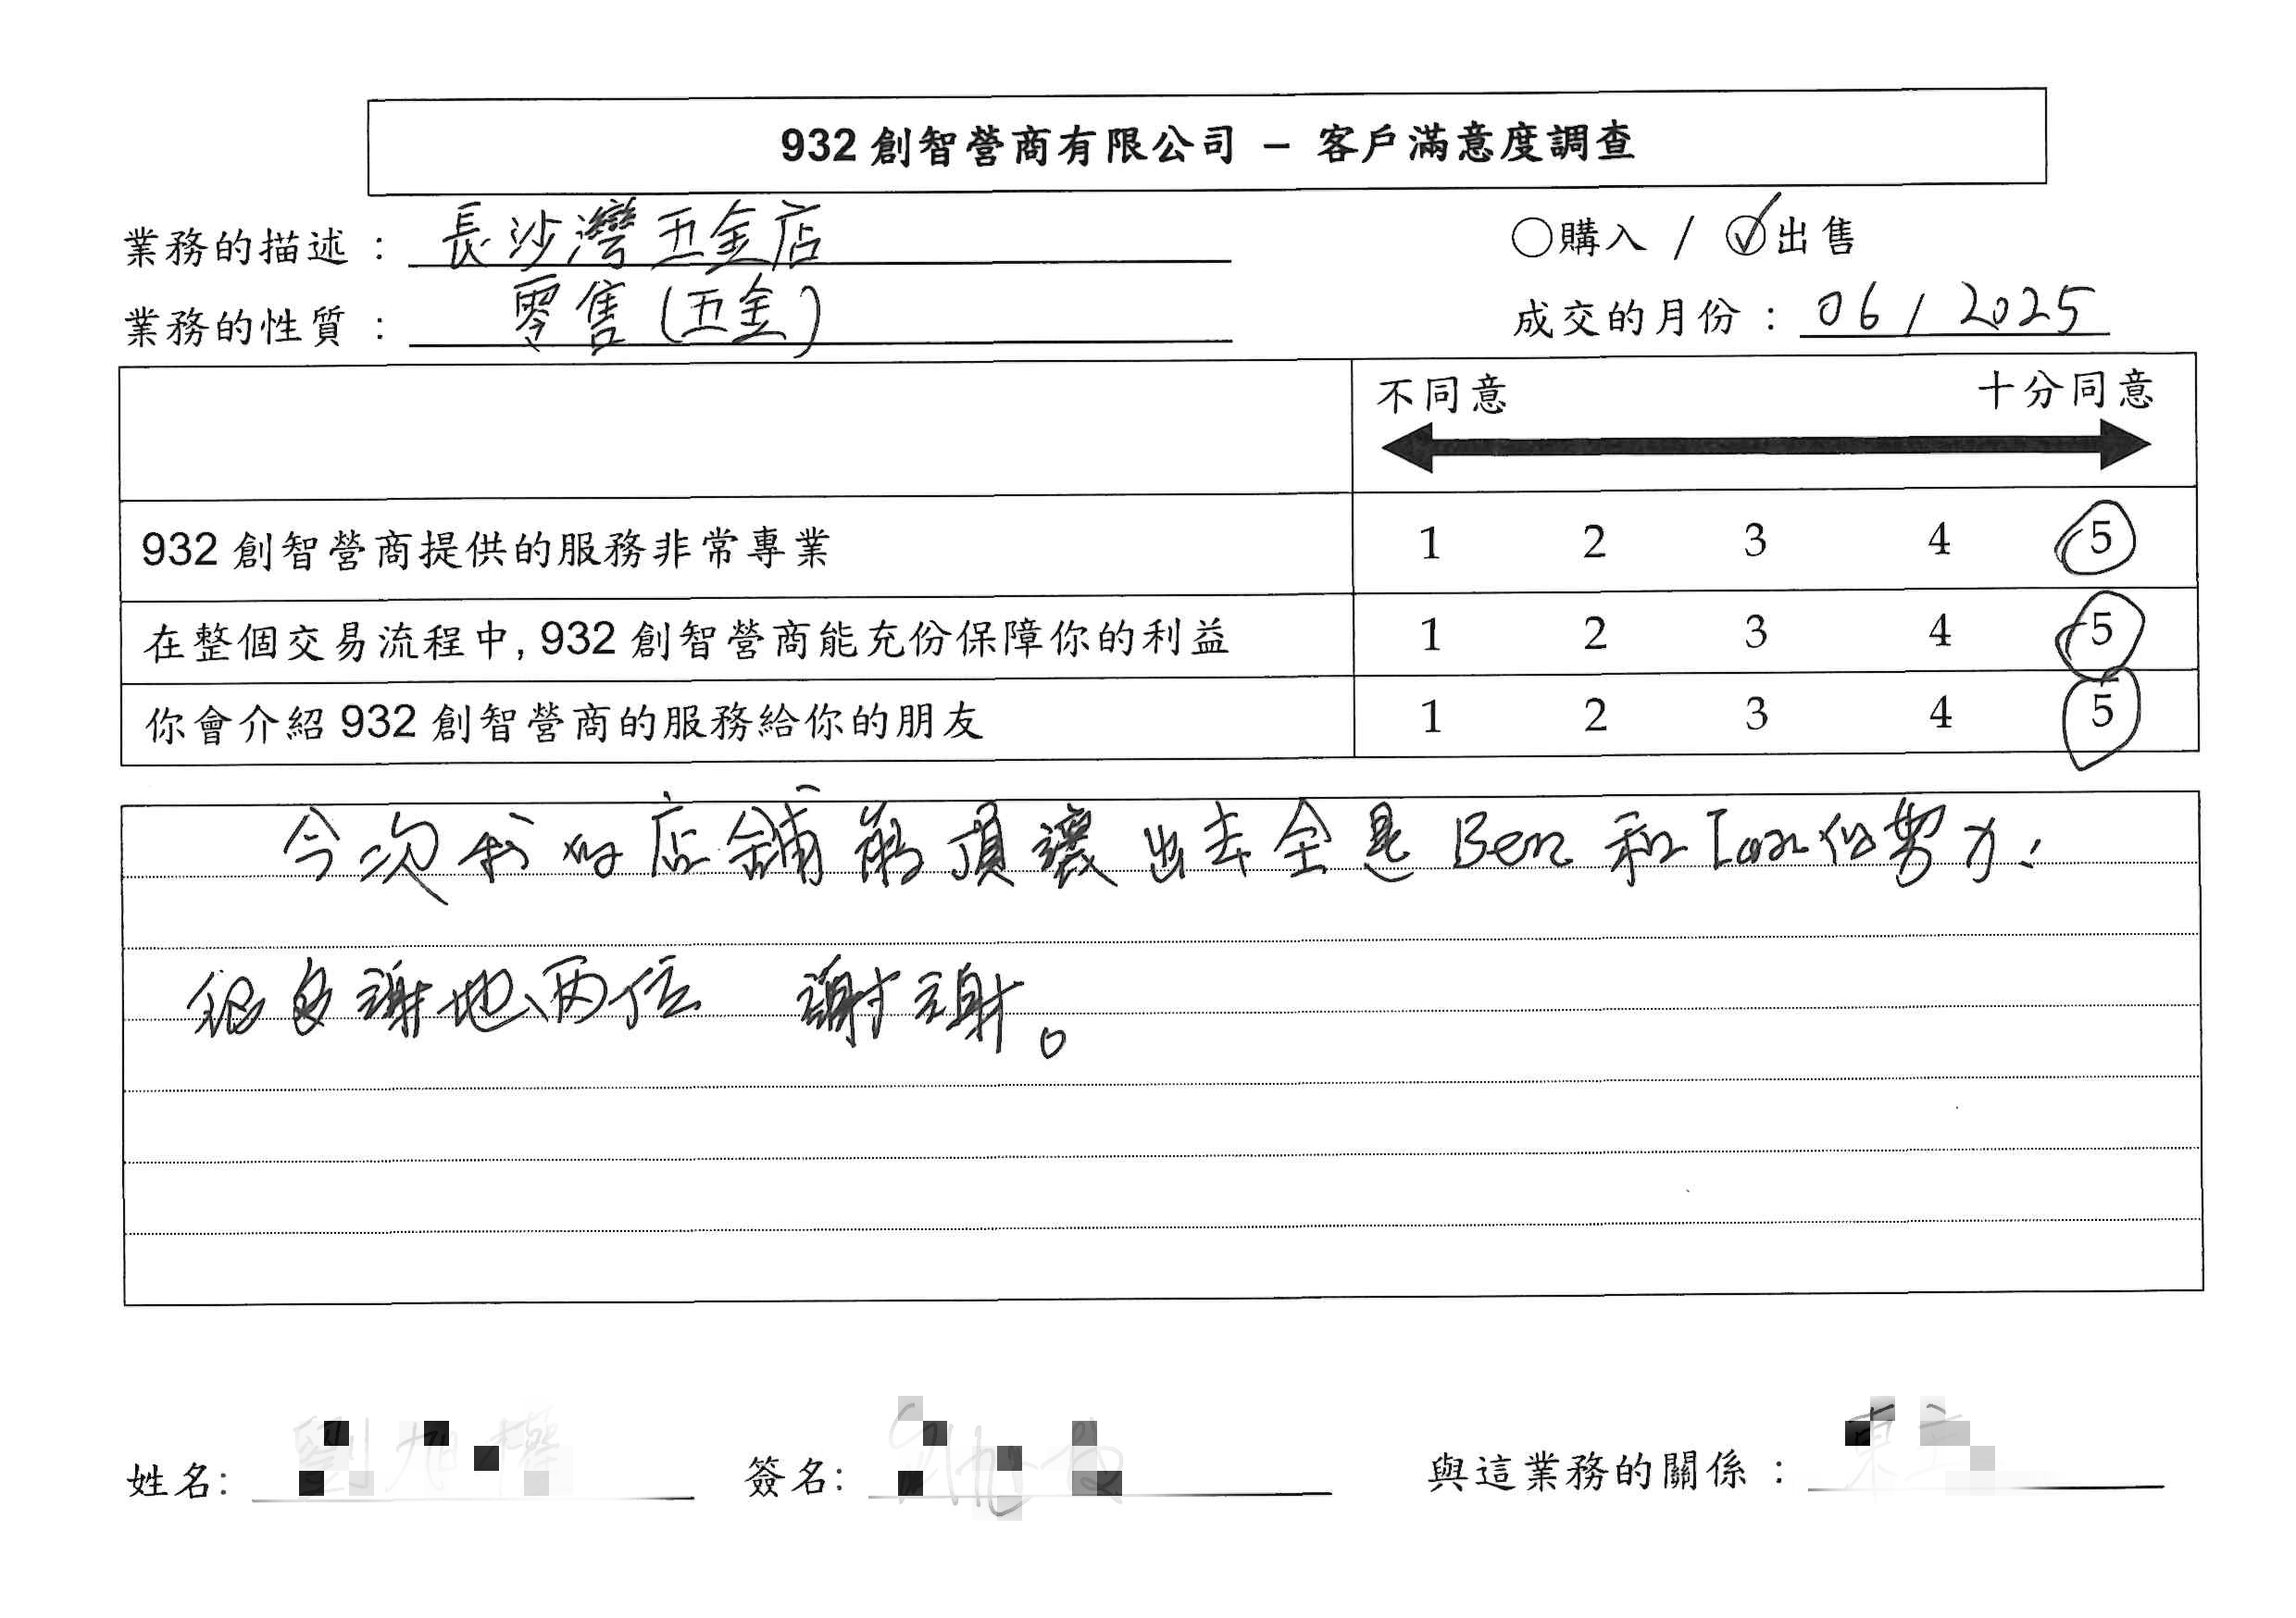 932 創智營商有限公司 – 客戶滿意度調查
業務的描述 : 長沙灣五金店 ○購入 / ✓出售
業務的性質 : 零售(五金) 成交的月份 : 06/2025
不同意 十分同意
932 創智營商提供的服務非常專業 1 2 3 4 5
在整個交易流程中, 932 創智營商能充份保障你的利益 1 2 3 4 5
你會介紹 932 創智營商的服務給你的朋友 1 2 3 4 5
今次我的店舖能頂讓出去全是Ben和Ian的努力,
很多謝他両位 謝謝。
姓名: 簽名: 與這業務的關係 :